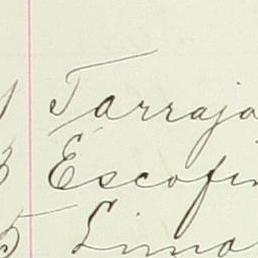 Tarraja
3 Escofi
5 Lima